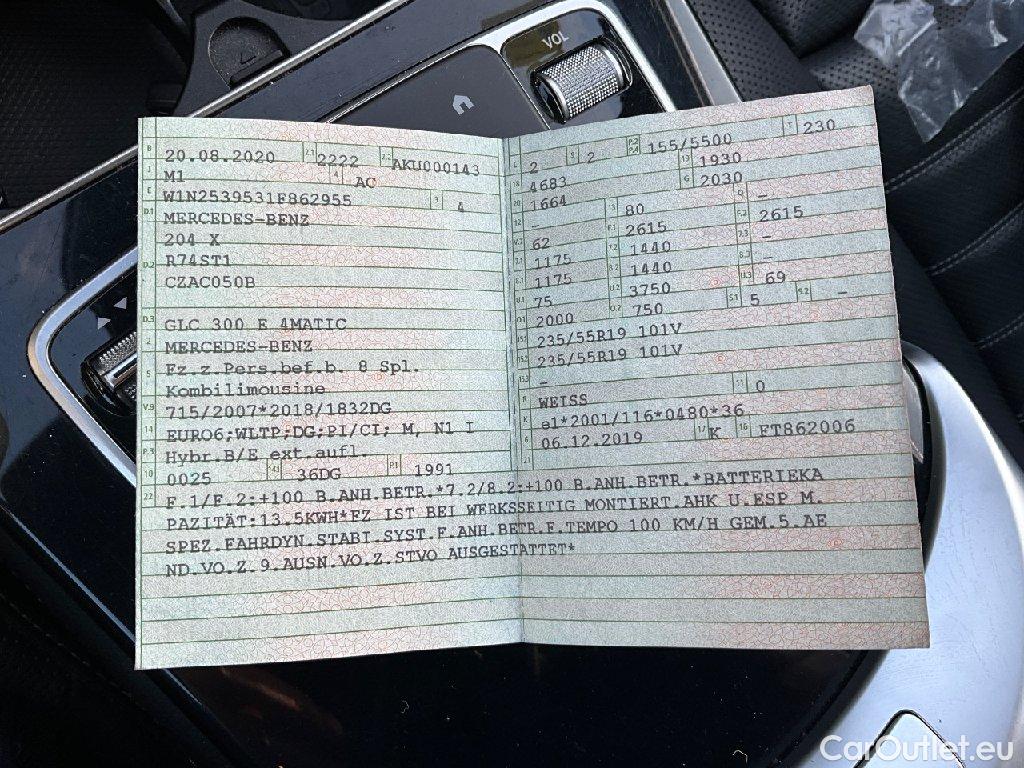 VOL
B 20.08.2020 2.1 2222 2.2 AKU000143
J M1 4 AC
E W1N2539531F862955 3 4
D.1 MERCEDES-BENZ
204 X
D.2 R74ST1
CZAC050B
D.3 GLC 300 E 4MATIC
2 MERCEDES-BENZ
5 Fz.z.Pers.bef.b. 8 Spl.
Kombilimousine
V.9 715/2007*2018/1832DG
14 EURO6;WLTP;DG;PI/CI; M, N1 I
P.3 Hybr.B/E ext.aufl.
10 0025 14.1 36DG P.1 1991
L 2 9 2 P.2 P.4 155/5500 T 230
18 4683 19 1930
20 1664 G 2030
12 - 13 80 Q -
V.7 62 F.1 2615 F.2 2615
7.1 1175 7.2 1440 7.3 -
8.1 1175 8.2 1440 8.3 -
U.1 75 U.2 3750 U.3 69
O.1 2000 O.2 750 S.1 5 S.2 -
15.1 235/55R19 101V
15.2 235/55R19 101V
15.3 -
R WEISS 11 0
K e1*2001/116*0480*36
6 06.12.2019 17 K 16 FT862006
21
22 F.1/F.2:+100 B.ANH.BETR.*7.2/8.2:+100 B.ANH.BETR.*BATTERIEKA
PAZITÄT:13.5KWH*FZ IST BEI WERKSSEITIG MONTIERT.AHK U.ESP M.
SPEZ.FAHRDYN.STABI.SYST.F.ANH.BETR.F.TEMPO 100 KM/H GEM.5.AE
ND.VO.Z.9.AUSN.VO.Z.STVO AUSGESTATTET*
CarOutlet.eu